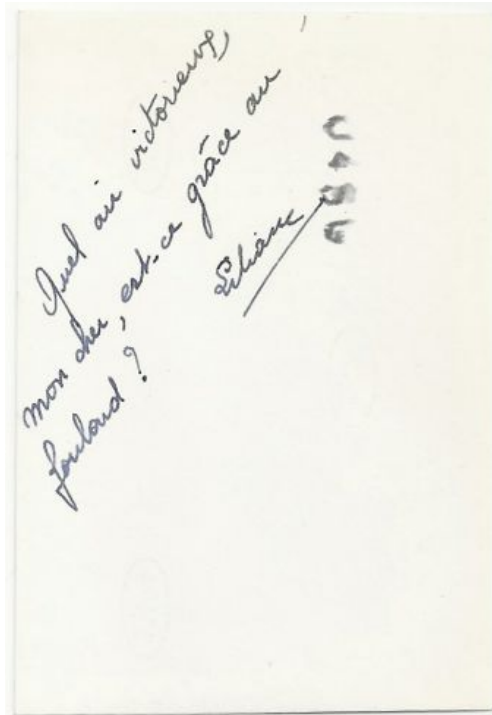 Quel air victorieux,
mon cher, est-ce grâce au
foulard ?
Liliane